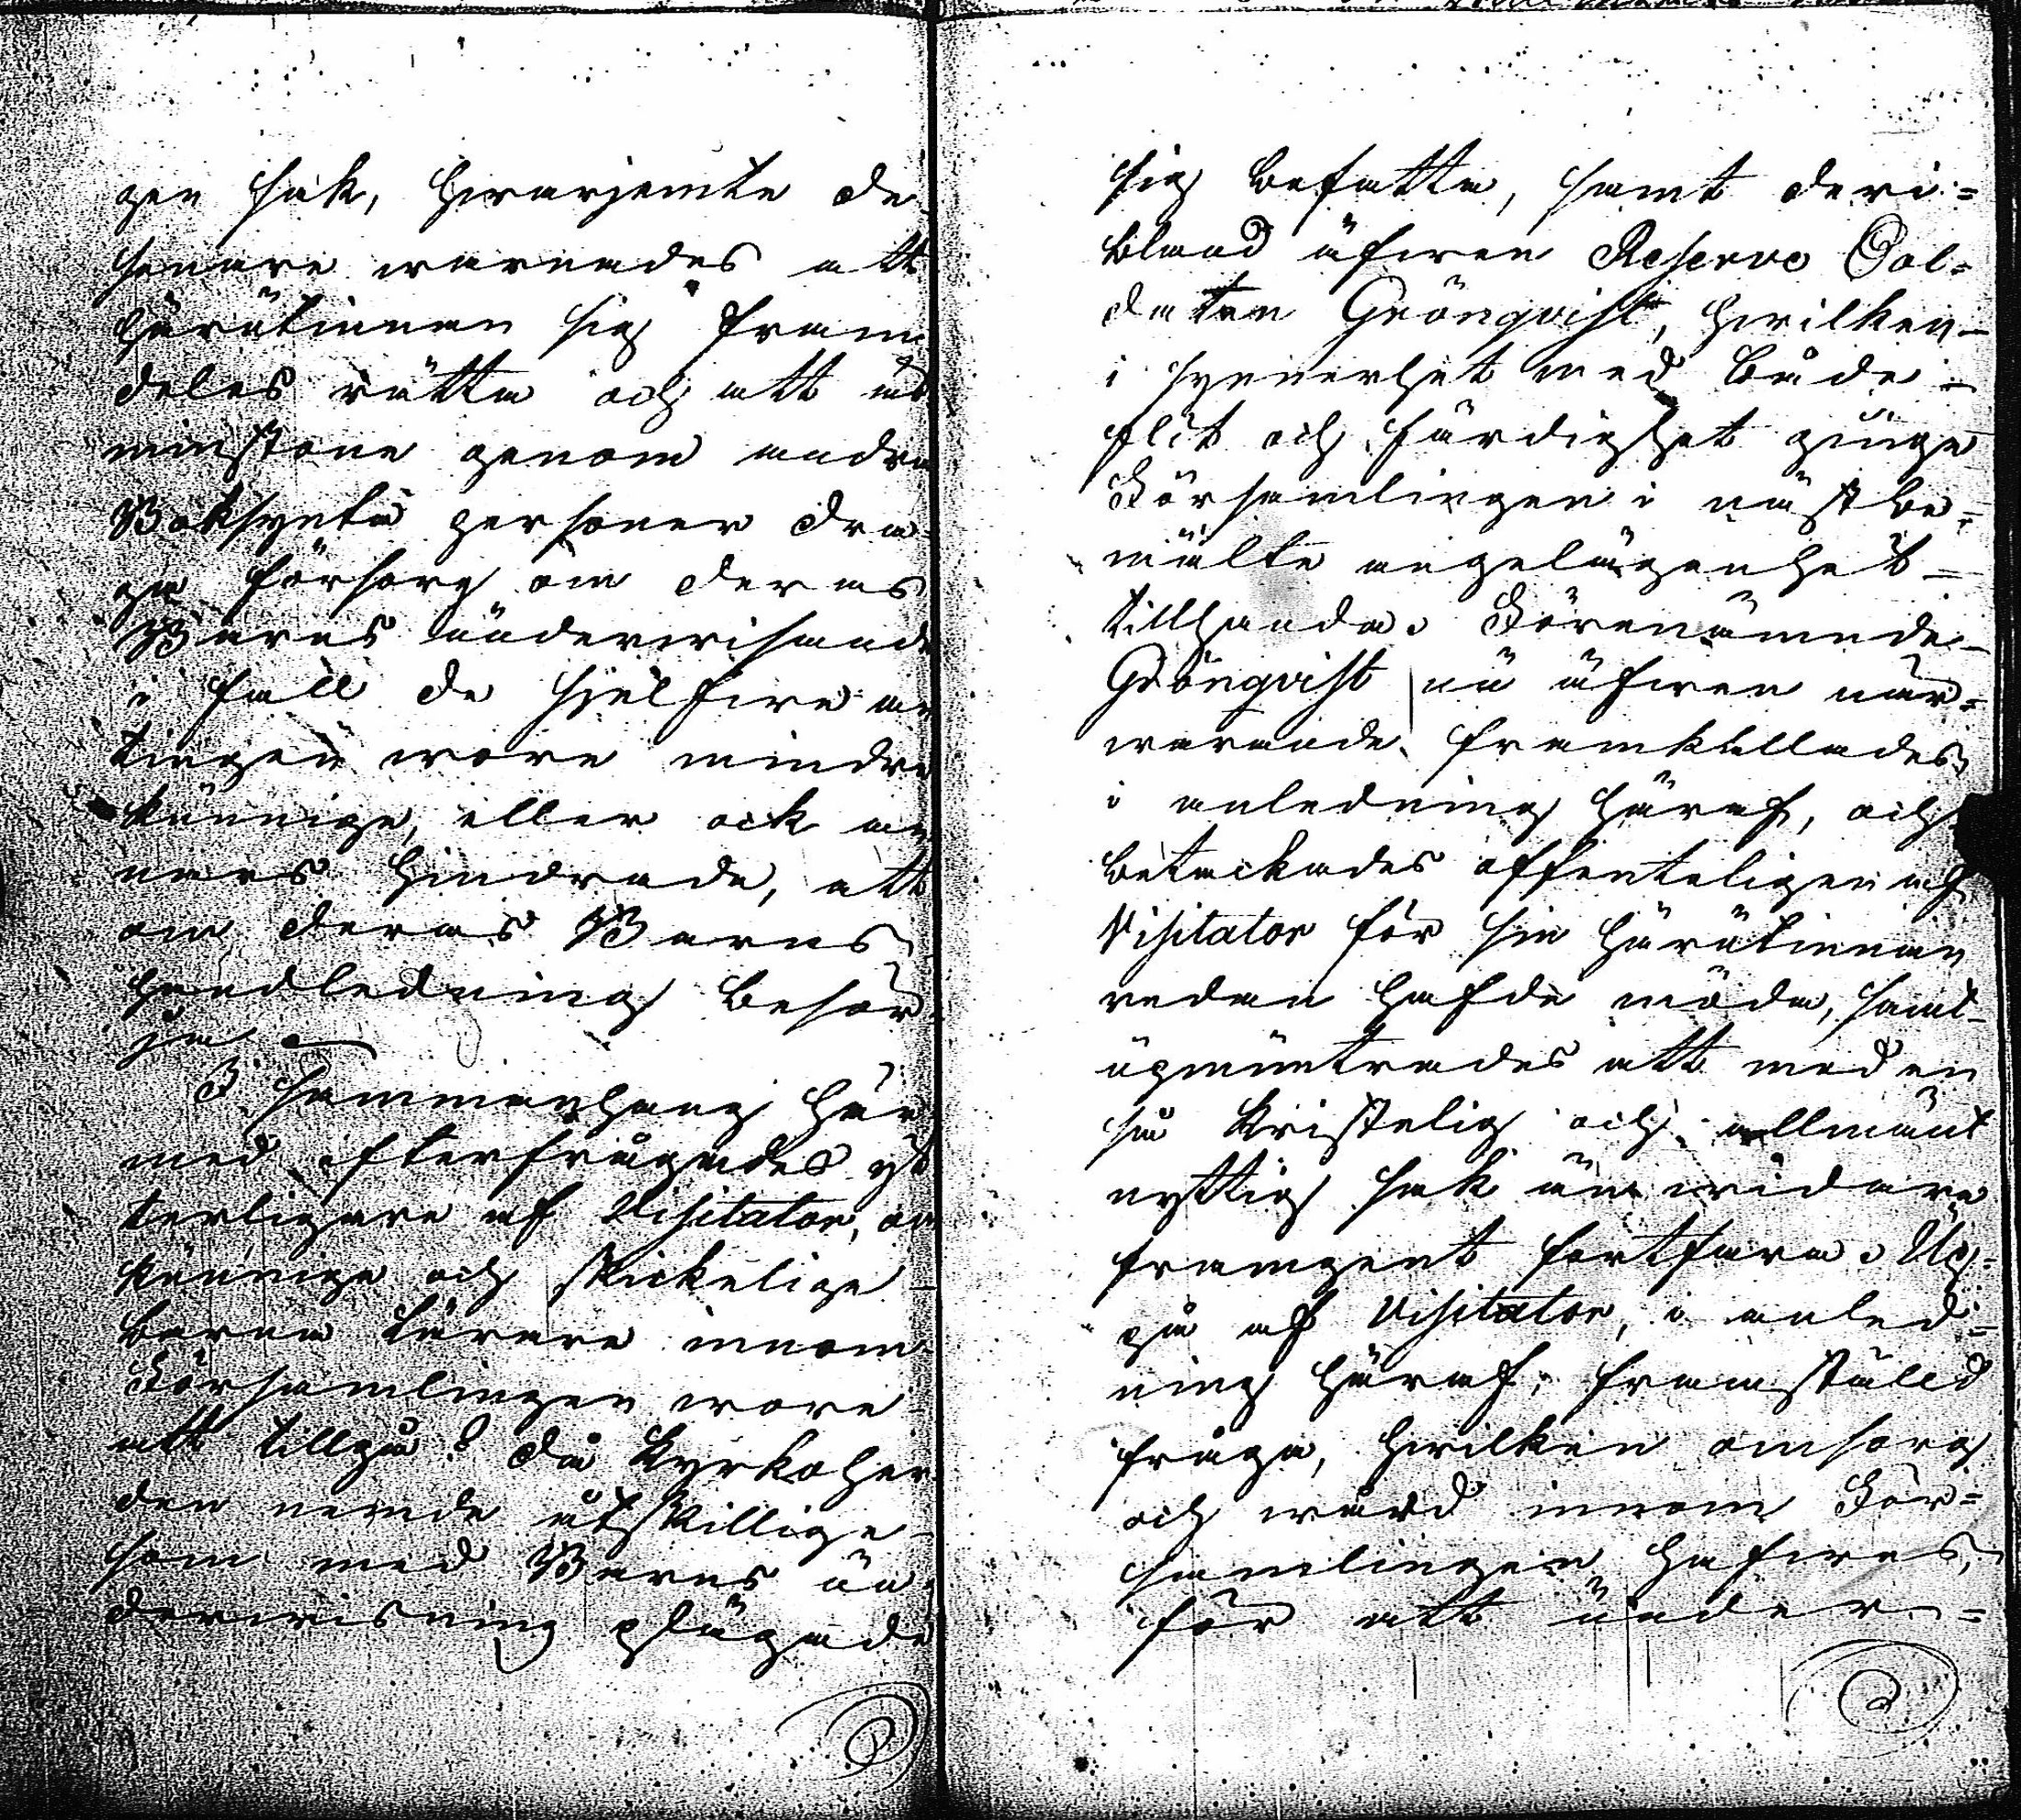 gen sak, hwarjemte de
senare warnades att
härutinnan sig fram
deles rätta och att åt
minstone genom andra
Boksynta personer dra-
ga försorg om deras
Barns underwisande
i fall de sjelfwe an
tingen wore mindre
kunnige, eller ock an
nars hindrade, att
om deras Barns
handledning besör
ja
I sammanhang här
med efterfrågades yt
terligare af Visitator, om
kunnige och skickelige
barna lärare innom
Församlingen wore
att tillgå? då Kyrkoher
den nämde åtskillige
som med Barns un
derwisning plägade
sig befatta, samt deri=
bland äfwen Reserve Sol=
daten Grönqvist, hwilken
i synnerhet med både
flit och färdighet ginge
Församlingen i nästbe=
mälte angelägenhet
tillhanda. Förenämnde
Grönqvist nu äfwen när=
warande, framkallades
i anledning häraf, och
betackades offenteligen af
Visitator för sin härutinnan
redan hafde möda, samt
upmuntrades att med en
så kristelig och allmänt
nyttig sak än widare
framgent fortfara. Up=
på af Visitator, i anled=
ning häraf, framstäld
fråga, hwilken omsorg
och wård innom För=
samlingen hafwes,
för att under=